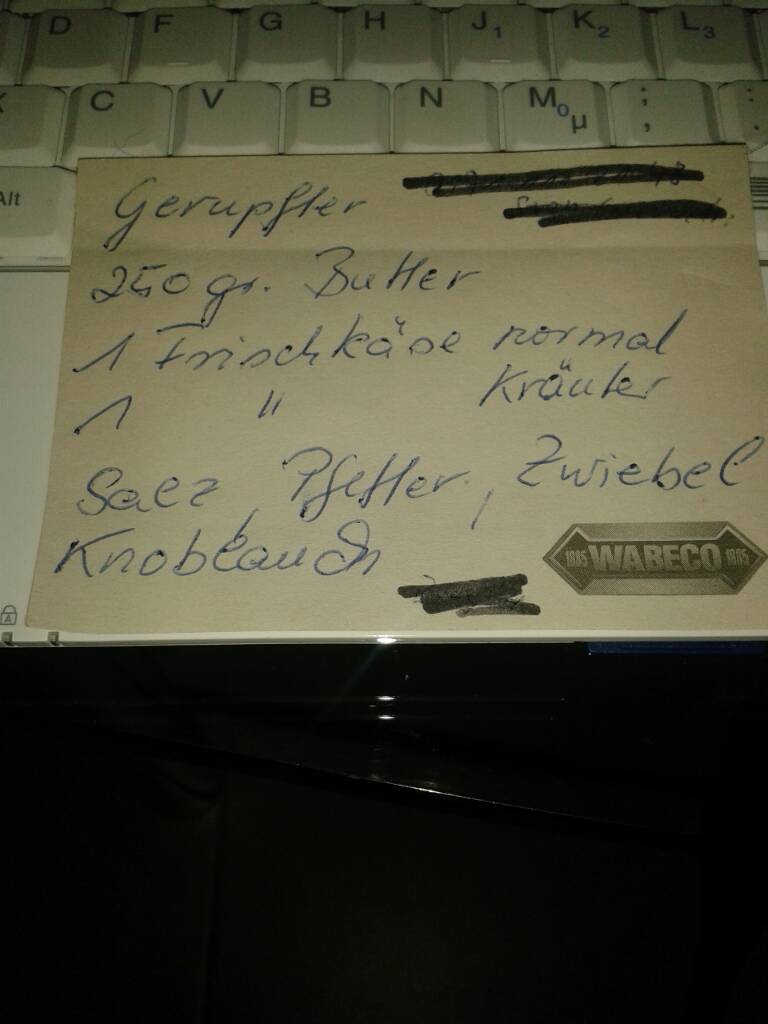 D F G H J1 K2 L3
X C V B N M0 µ ; , : .
Alt
Gerupfter
250 gr. Butter
1 Frischkäse normal
1 " Kräuter
Salz, Pfeffer, Zwiebel
Knoblauch
1885 WABECO 1885
A